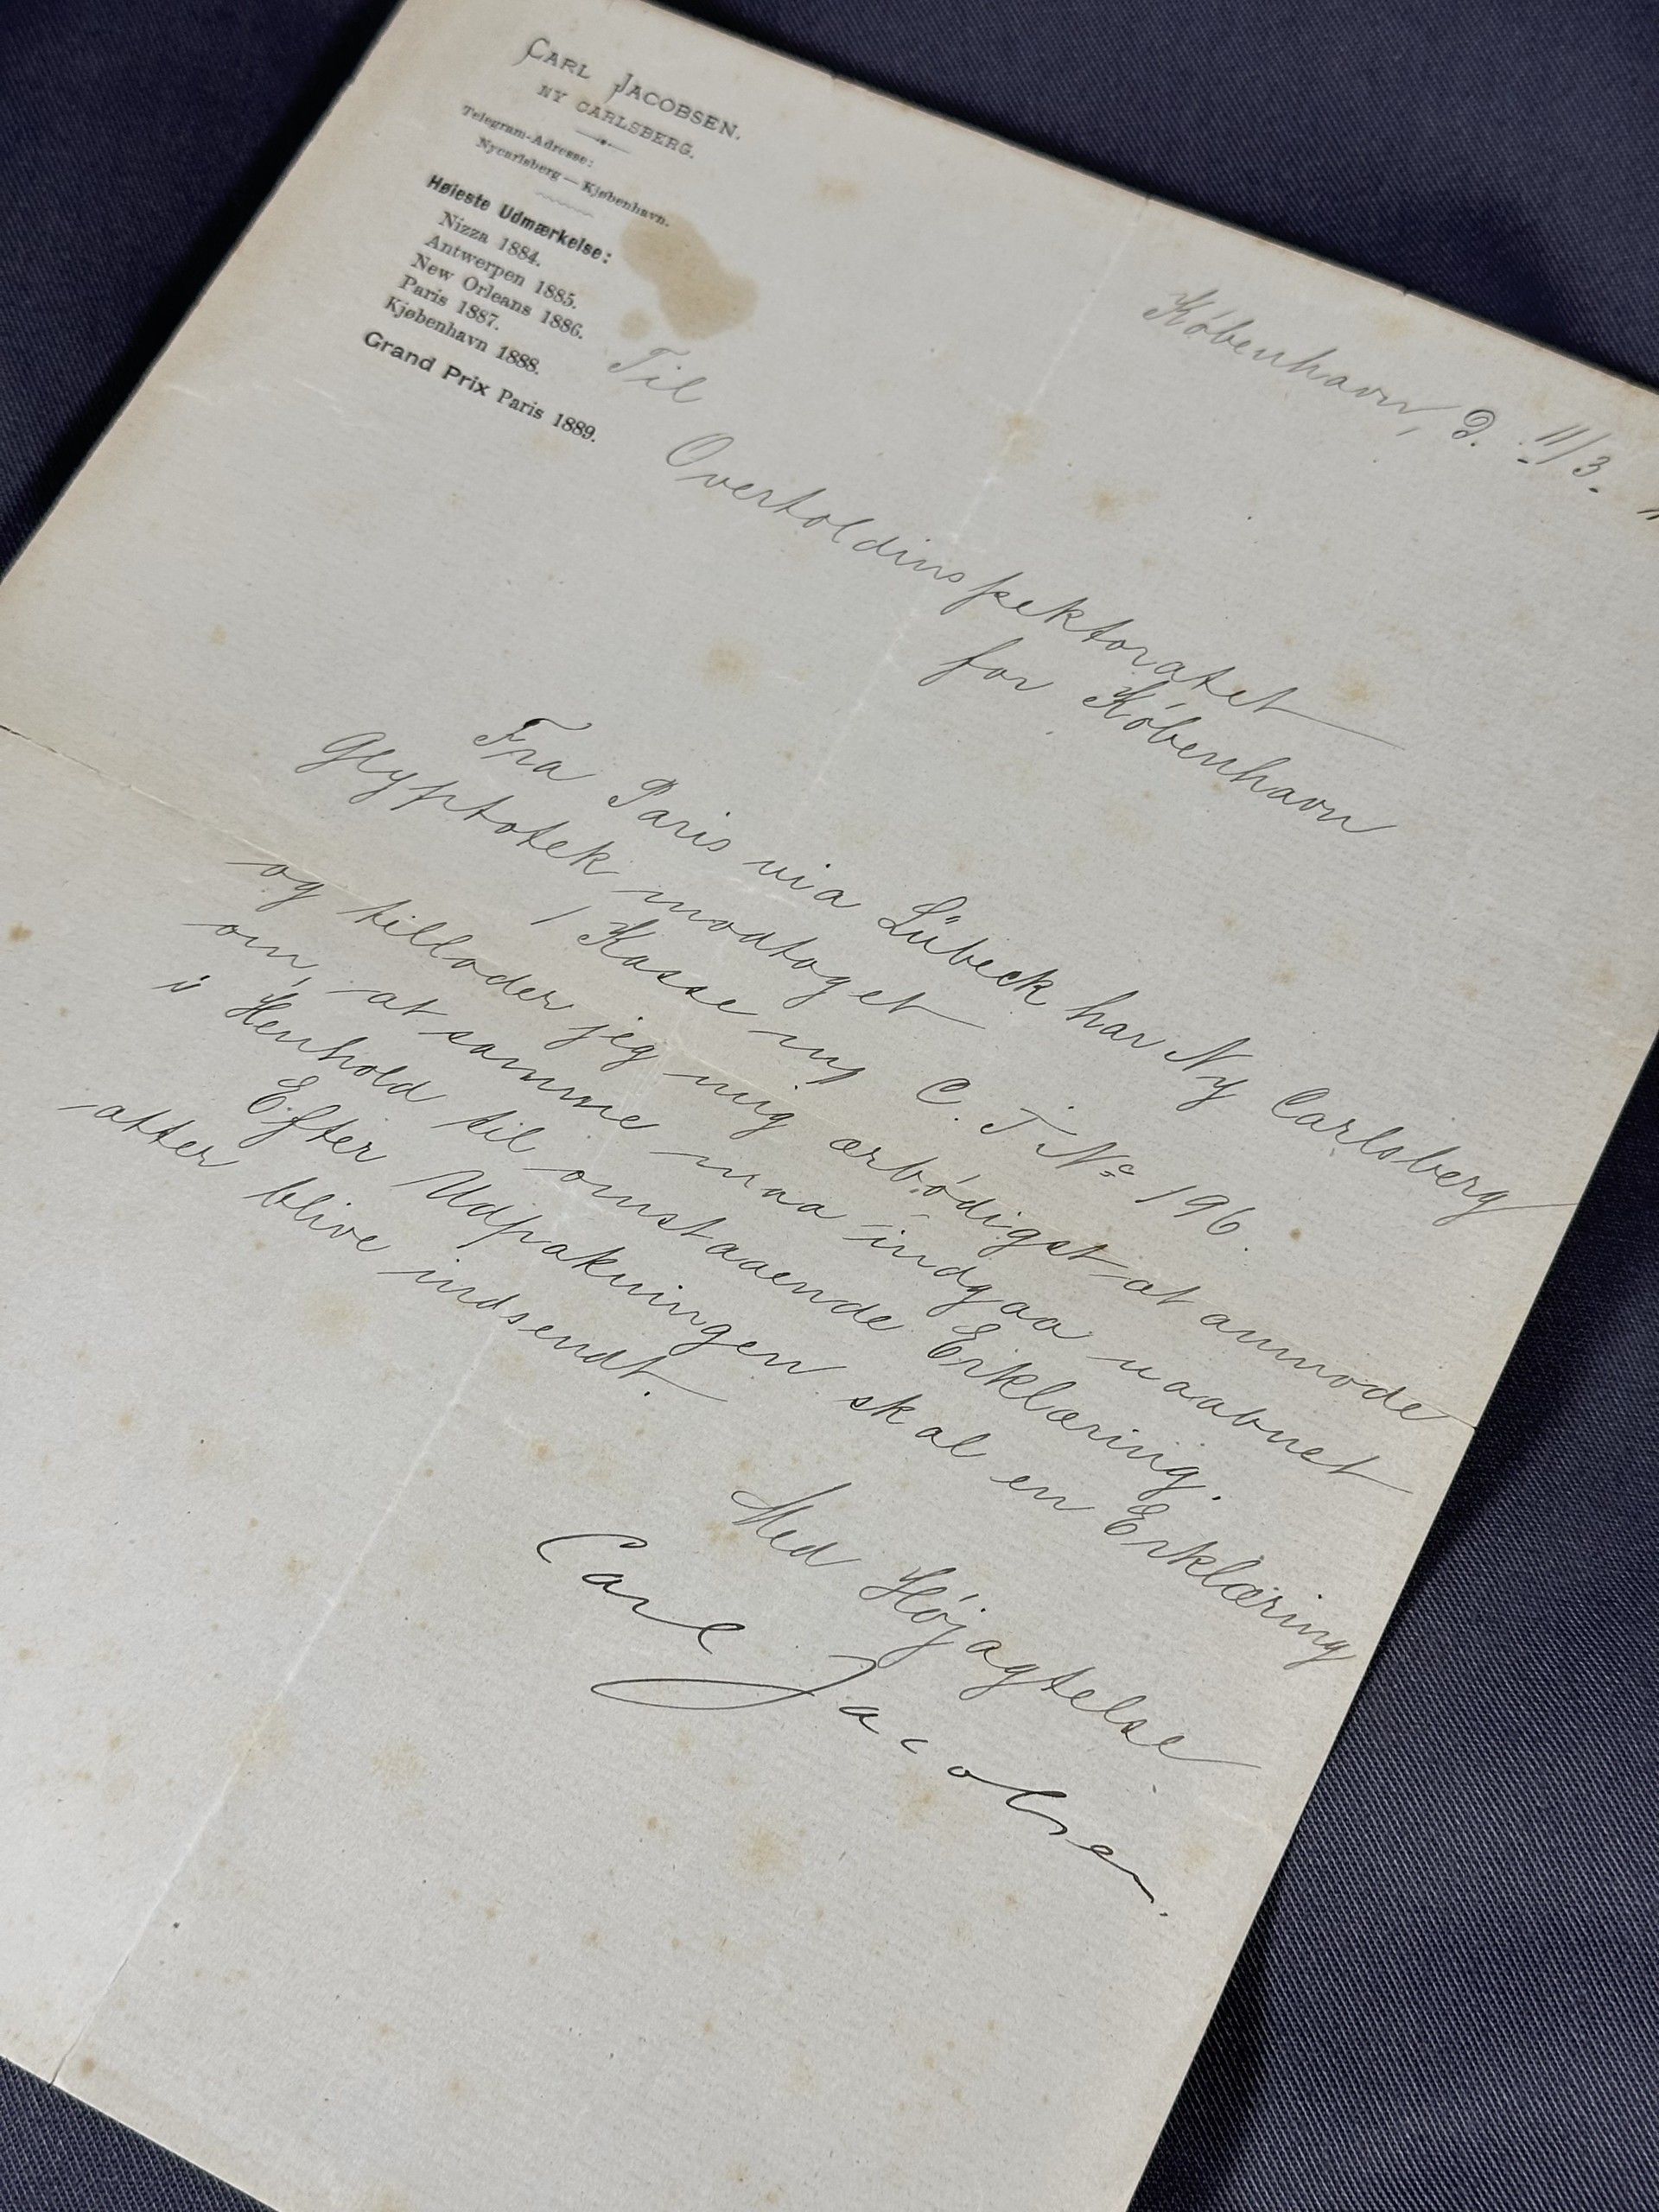 CARL JACOBSEN.
NY CARLSBERG.
Telegram-Adresse:
Nycarlsberg — Kjøbenhavn.
Høieste Udmærkelse:
Nizza 1884.
Antwerpen 1885.
New Orleans 1886.
Paris 1887.
Kjøbenhavn 1888.
Grand Prix Paris 1889.
København, d. 11/3.
Til
Overtoldinspektoratet
for København
Fra Paris via Lübeck har Ny Carlsberg
Glyptotek modtaget
1 Kasse mrk C. J. No 196.
og tillader jeg mig ærbødigst at anmode
om, at samme maa indgaa uaabnet
i Henhold til omstaaende Erklæring.
Efter Udpakningen skal en Erklæring
atter blive indsendt.
Med Højagtelse
Carl Jacobsen.